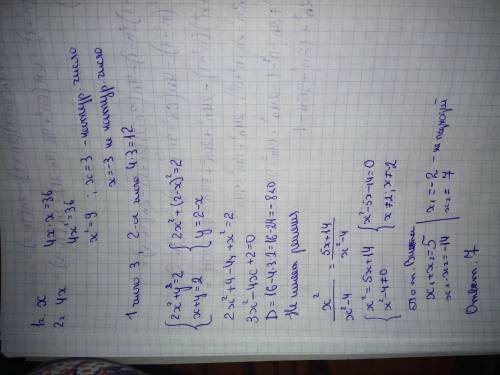 1. x
2. 4x
4x·x=36
4x²=36
x²=9 ; x=3 - натур. число
x=-3 не натур. число
1 число 3, 2-ое число 4·3=12
{2x²+y²=2 {2x²+(2-x)²=2
{x+y=2 {y=2-x
2x²+4-4x+x²=2
3x²-4x+2=0
D=16-4·3·2=16-24=-8<0
Не имеет решения
x²/x²-4 = 5x+14/x²-4
{x²=5x+14 {x²-5x-14=0
{x²-4≠0 {x≠2; x≠-2
По т. Виета
x₁+x₂=5 | x₁=-2 - не подходит
x₁·x₂=-14 | x₂=7
Ответ: 7